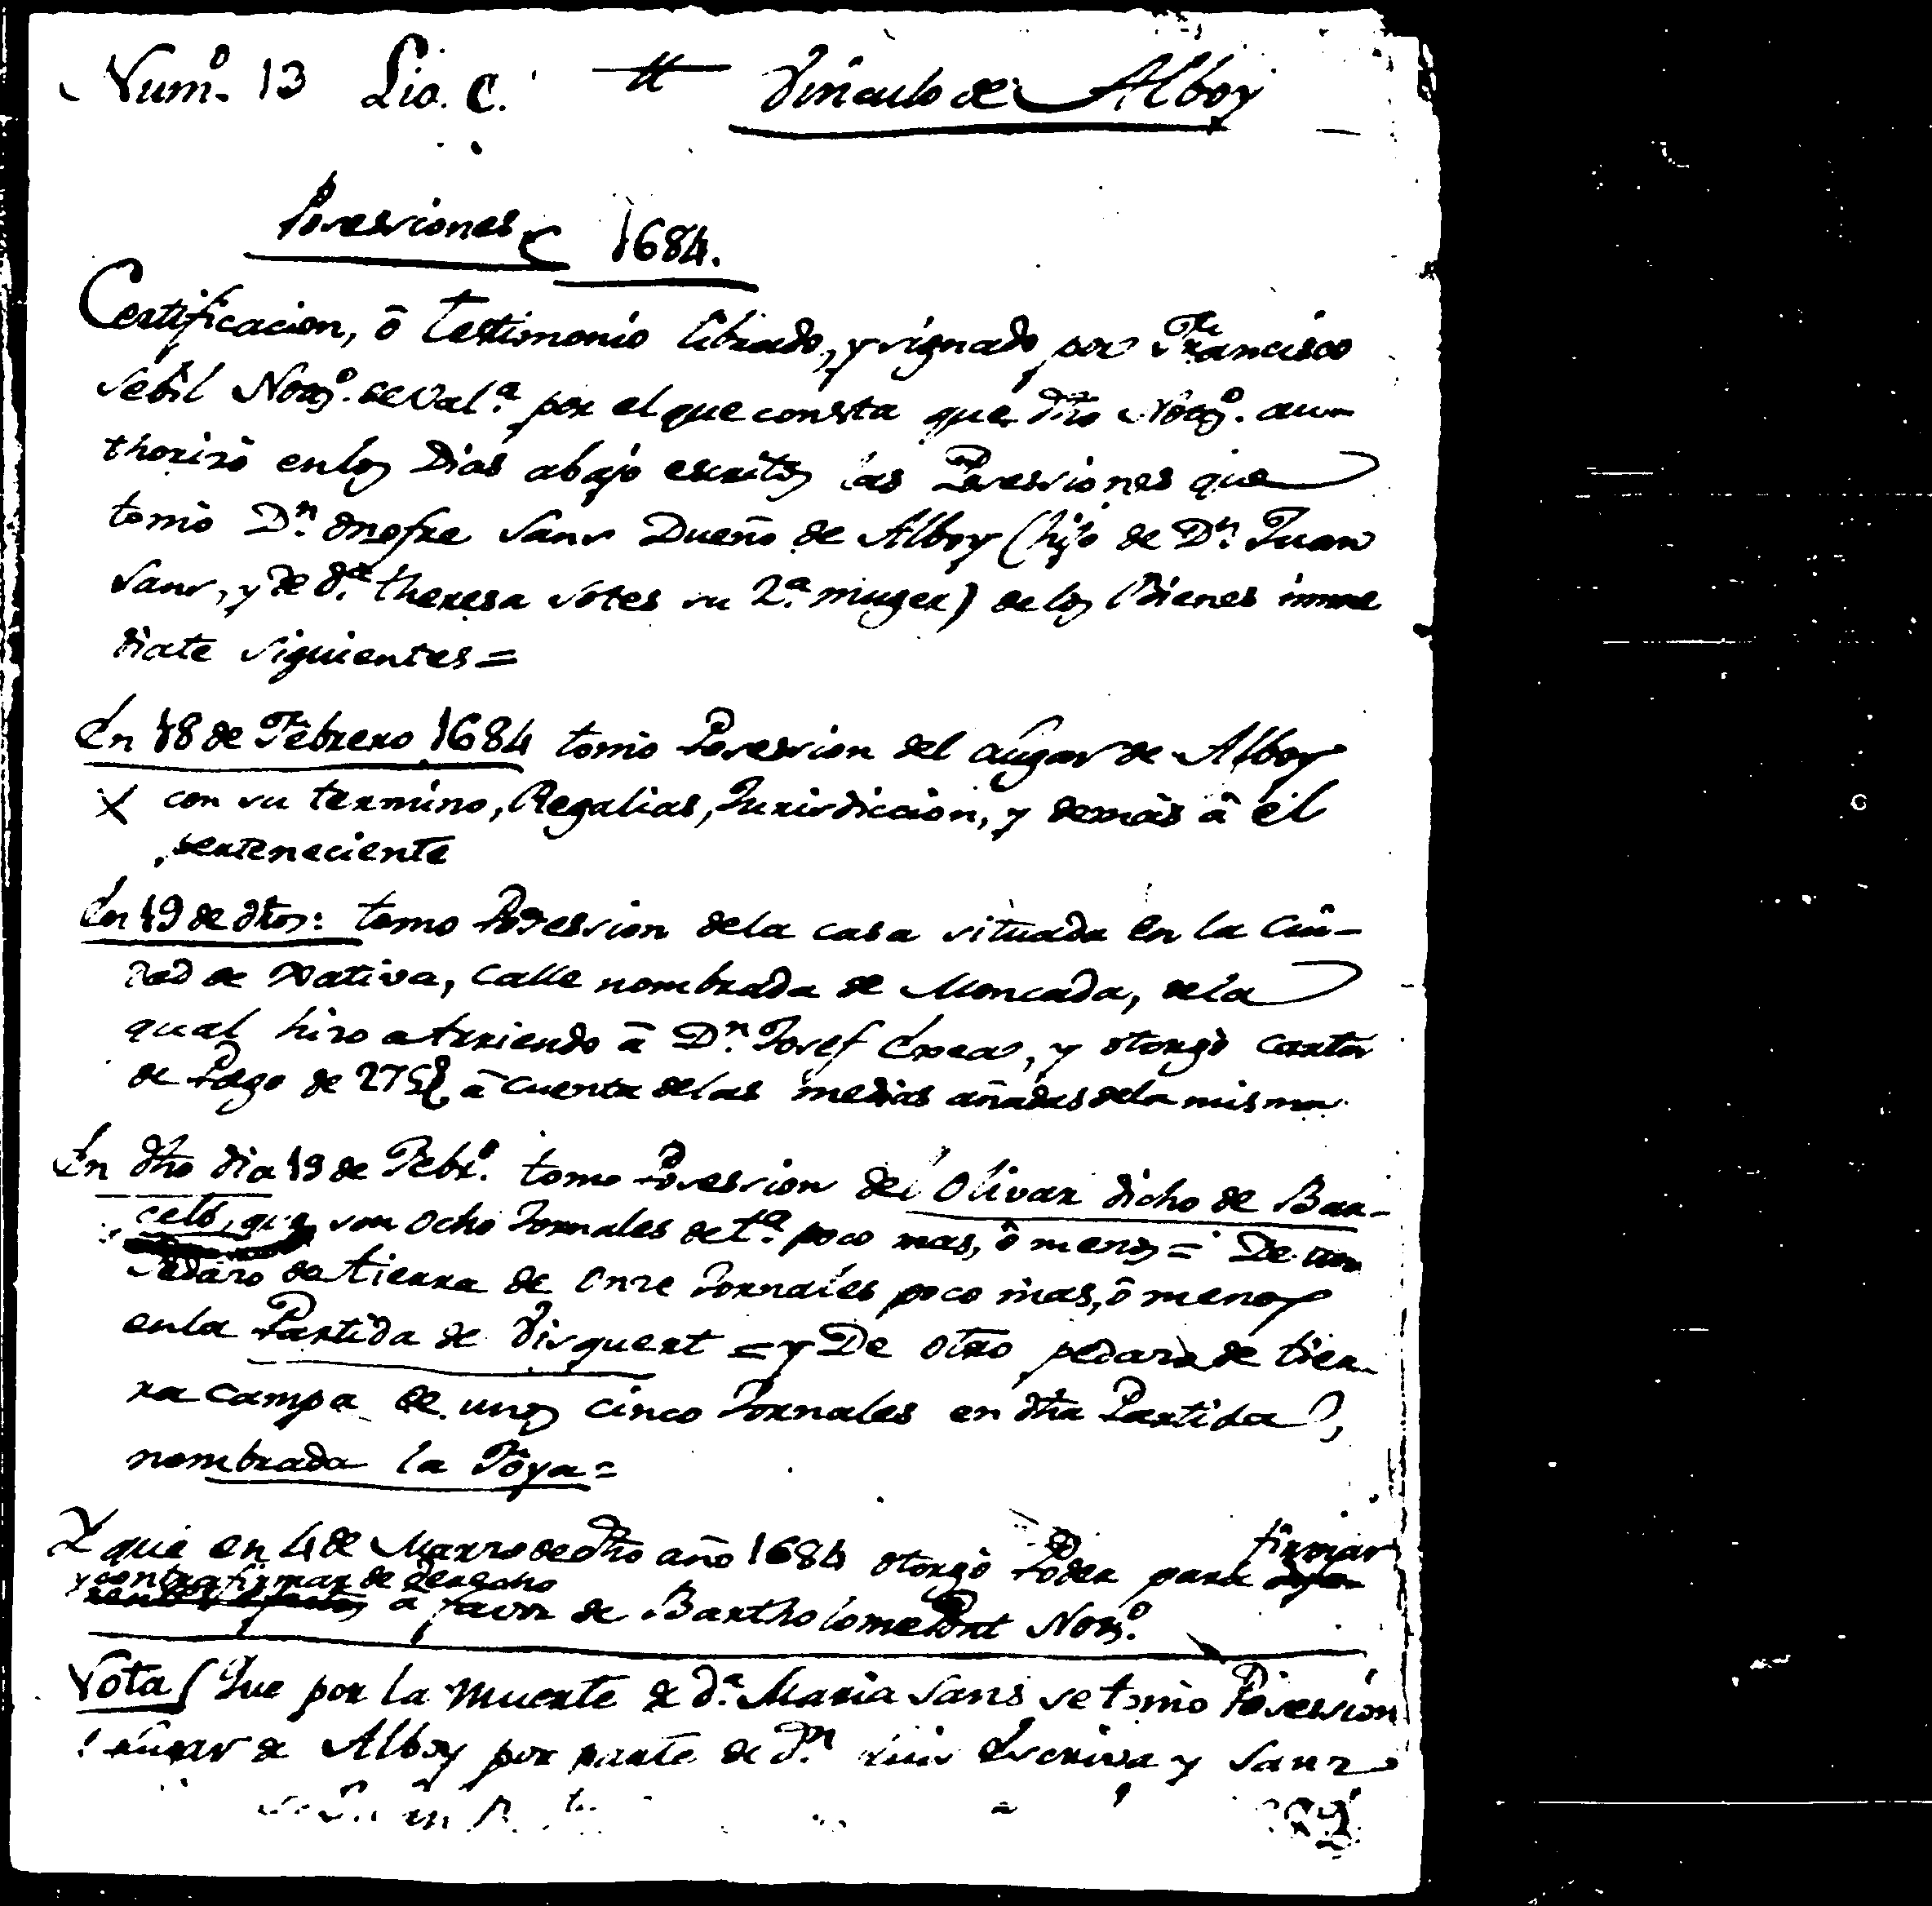 Num.º 13 Lio. C. tt Vinculo de Alboy
Possesiones 1684.
Certificacion, ô testimonio librado, y signado por Francisco
Sebil Nor.º de Val.ª por el que consta que dho Nor.º au-
thorizó en los Dias abajo escritos las Possessiones que
tomó D.n Onofre Sans Dueño de Alboy (hijo de D.n Juan
Sans, y de d.ª theresa Sotes su 2.ª muger) de los Bienes imme
diate siguientes =
En 18 de Febrero 1684 tomó Possession del Lugar de Alboy
X con su termino, Regalias, Jurisdiccion, y demás â él
perteneciente
En 19 de dhos: tomo Possession dela casa situada en la Ciu-
dad de Xativa, calle nombrada de Moncada, dela
qual hizo arriendo â D.n Josef, y otorgó carta
de Pago de 275 â cuenta delas medias añadas dela misma
En dho dia 19 de Febr.º tomo Possession del Olivar dicho de Bar-
celó, que son ocho Jornales de t.ª poco mas, ô menos = De un
Pedazo de tierra de Onze Jornales poco mas, ô menos
enla Partida de Visquert = y De otro pedazo de tier-
ra campa de unos cinco Jornales en dha Partida,
nombrada la Foya =
Y que en 4 de Marzo de dho año 1684 otorgó Poder para firmar
y contrafirmar de derecho
â favor de Bartholome Pont Nor.º
Nota / Que por la muerte de d.ª Maria Sans se tomó Possession
Lugar de Alboy por parte de D.n Luis Escriva y Sanz